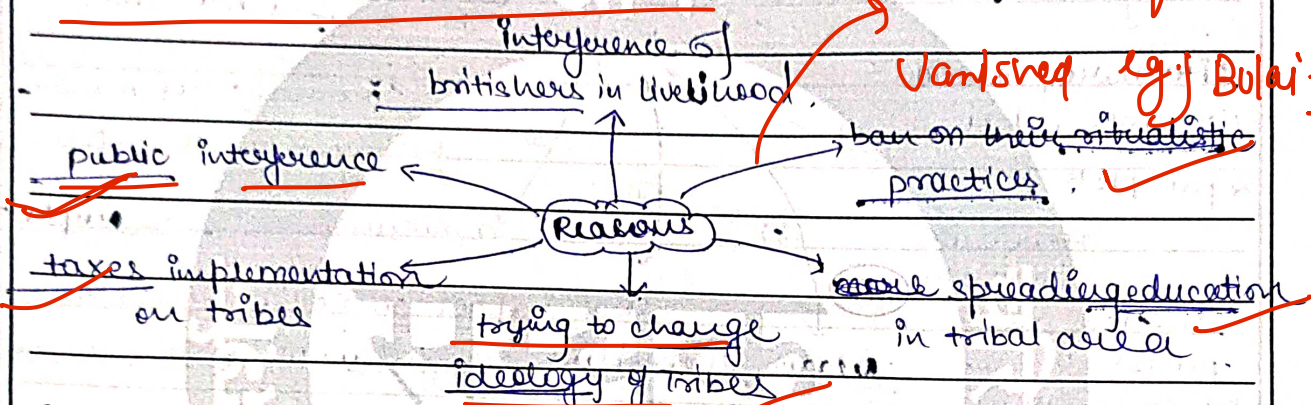 interference of
britishers in livelihood.
Vanished eg:
public interference
ban on their ritualistic
practices.
Reasons
taxes implementation
on tribes
trying to change
ideology of tribes
spreading education
in tribal area